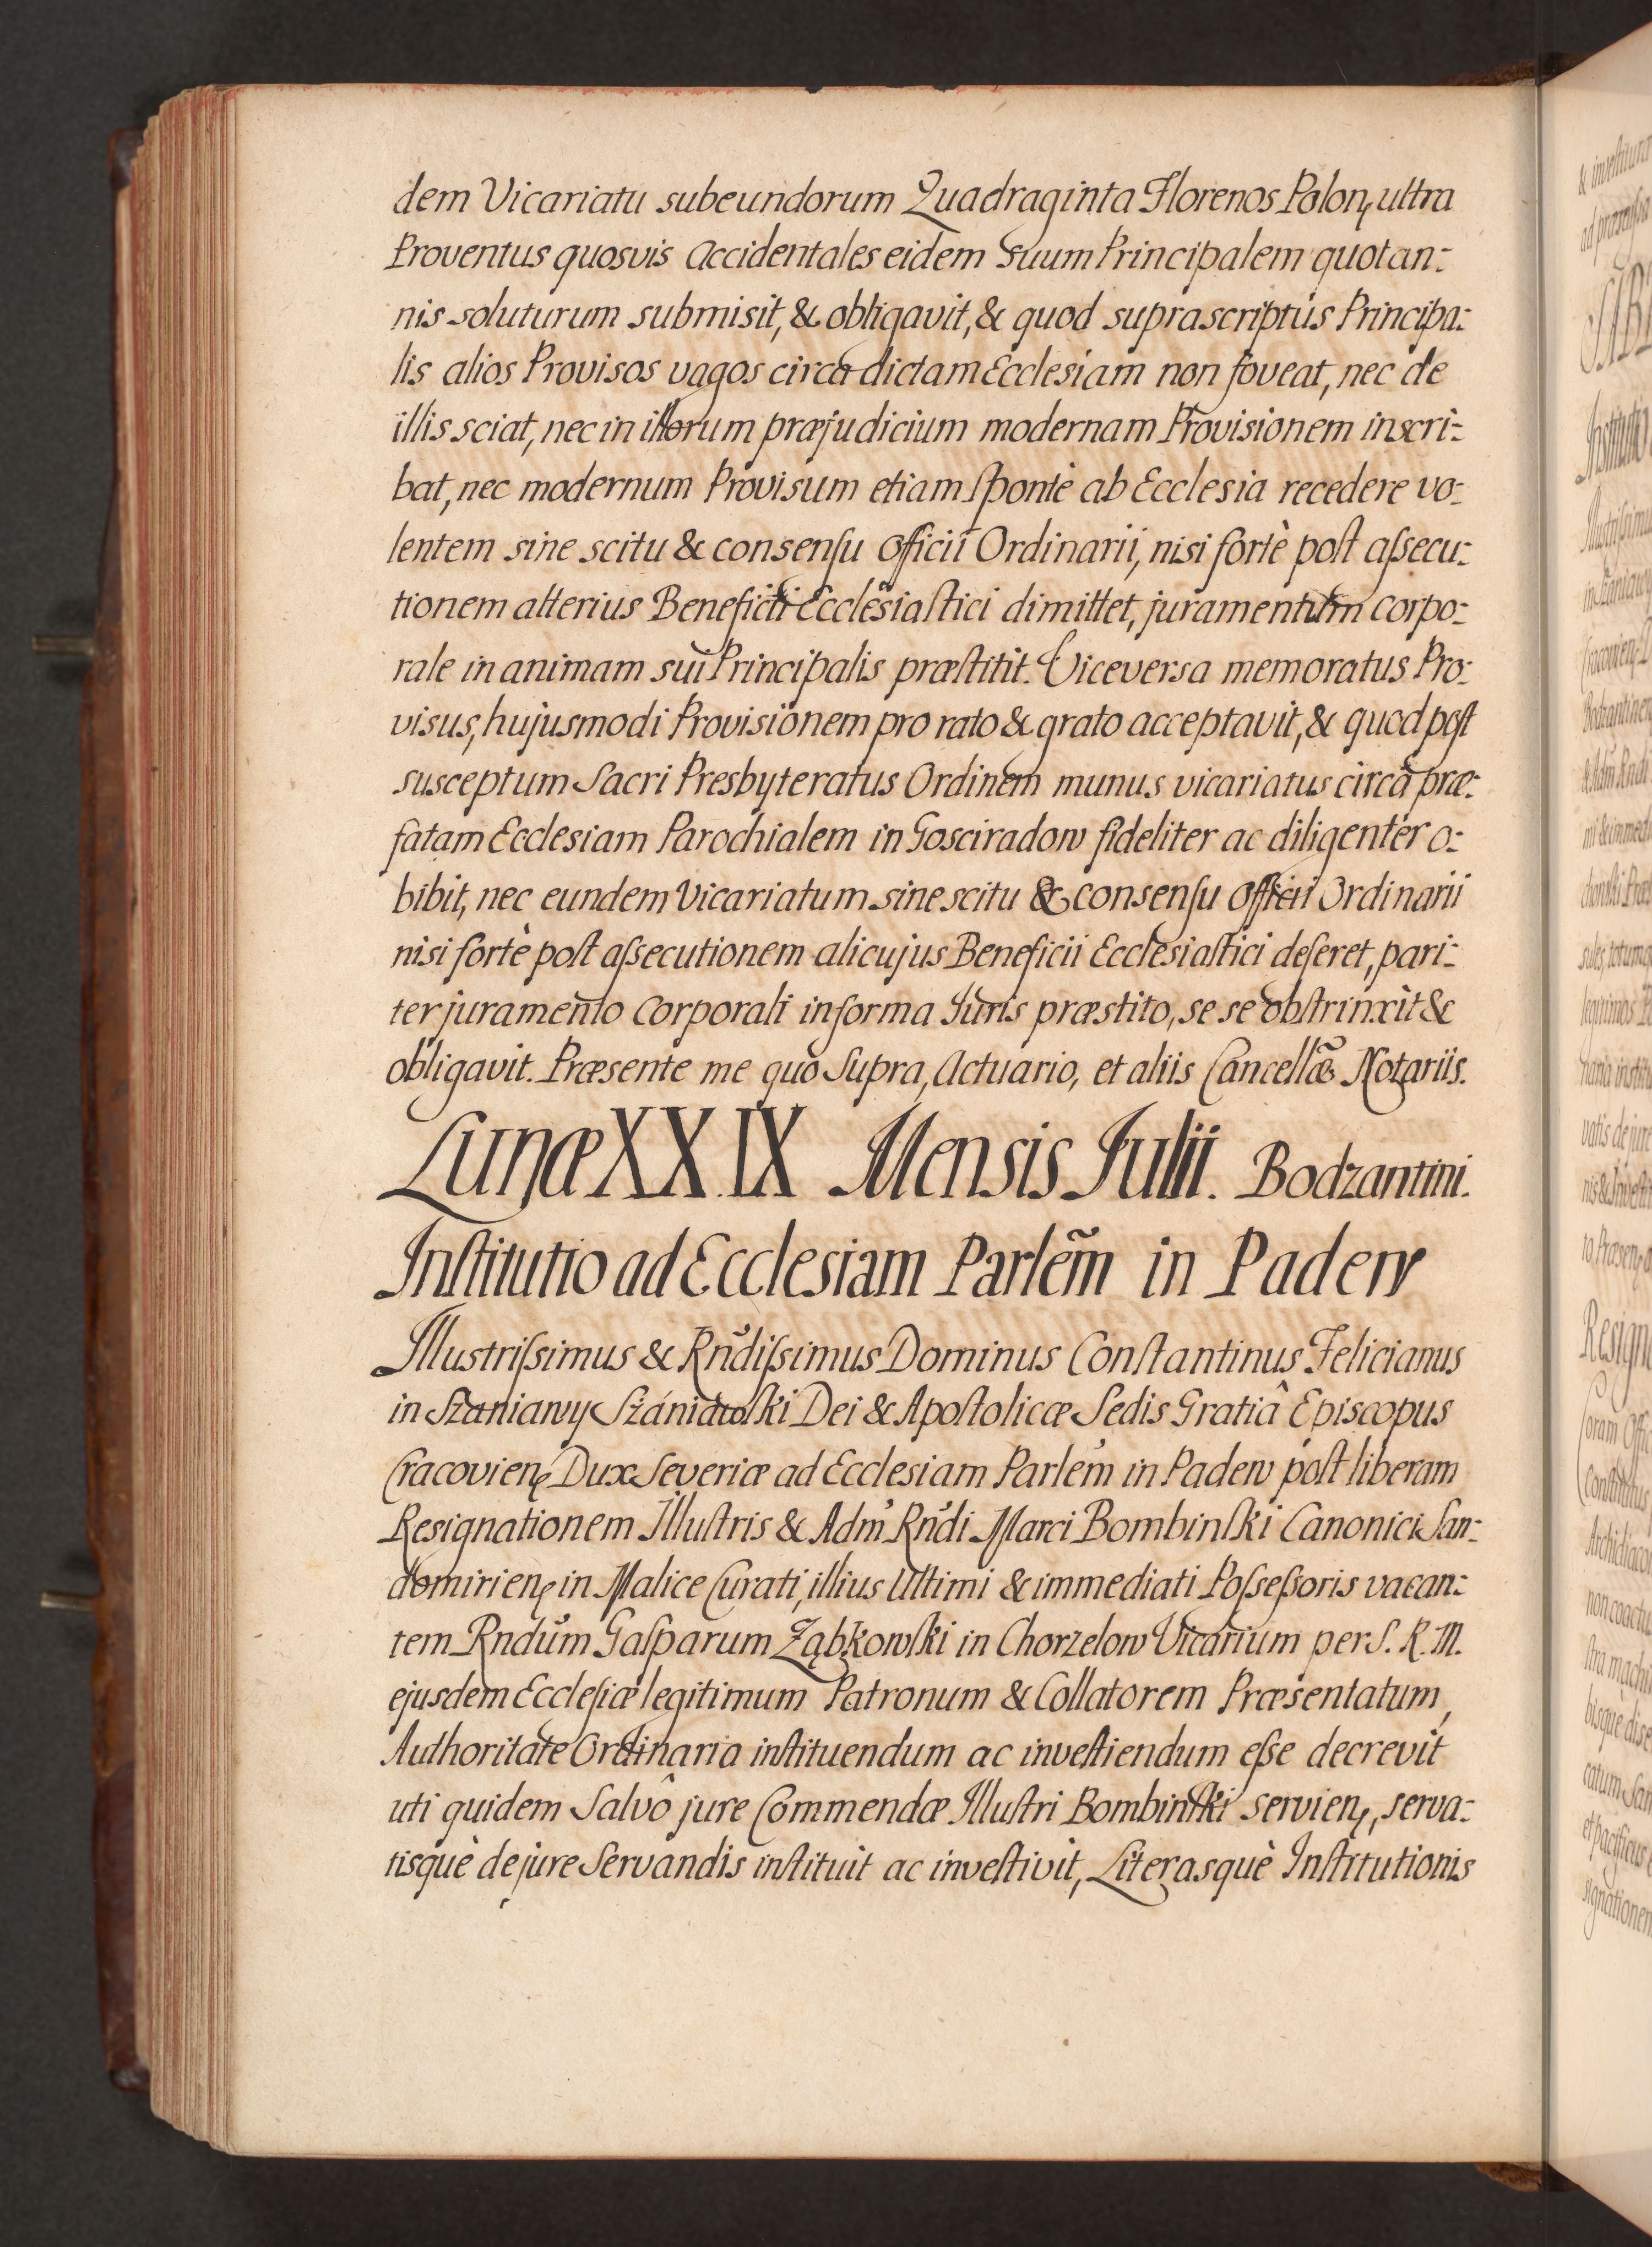 dem Vicariatu subeundorum Quadraginta Florenos Polonꝭ ultra
Proventus quosvis accidentales eidem Suum Principalem quotan:
nis soluturum submisit, & obligavit, & quod suprascriptus Principa:
lis alios Provisos vagos circa dictam Ecclesiam non foveat, nec de
illis sciat, nec in illorum præjudicium modernam Provisionem inscri:
bat, nec modernum Provisum etiam sponte ab Ecclesia recedere vo:
lentem sine scitu & consenſu officii Ordinarii, nisi fortè poſt aſsecu:
tionem alterius Beneficii Eccleſiaſtici dimittet, juramentum corpo:
rale in animam sui Principalis præſtitit. Viceversa memoratus Pro:
visus, hujusmodi Provisionem pro rato & grato acceptavit, & quod poſt
susceptum Sacri Presbyteratus Ordinem munus vicariatus circa præ:
fatam Ecclesiam Parochialem in Gosciradow fideliter ac diligenter o:
bibit, nec eundem Vicariatum sine scitu & consenſu officii Ordinarii
nisi fortè poſt aſsecutionem alicujus Beneficii Ecclesiaſtici deſeret, pari:
ter juramento corporali in forma Juris præstito, se se obſtrinxit &
obligavit. Præsente me quo Supra, Actuario, et aliis Cancellæ Notariis.
Lunæ XX.IX Mensis Julii. Bodzantini.
Inſtitutio ad Ecclesiam Parlem̃ in Padew
Illustriſsimus & Rñdiſsimus Dominus Conſtantinus Felicianus
in Szaniawy Szániawſki Dei & Apoſtolicæ Sedis Gratiâ Episcopus
Cracovienꝭ Dux Severiæ ad Ecclesiam Parlem̃ in Padew poſt liberam
Resignationem Illuſtris & Adm̃ Rñdi Marci Bombinſki Canonici San:
domirienꝭ in Malice Curati, illius Ultimi & immediati Poſseſsoris vacan:
tem Rndũm Gaſparum Ząbkowſki in Chorzelow Vicarium per S. R. M.
ejusdem Eccleſiæ legitimum Patronum & Collatorem Præsentatum,
Authoritate Ordinaria inſtituendum ac inveſtiendum eſse decrevit
uti quidem Salvô jure Commendæ Illuſtri Bombinſki servienꝭ, serva:
tisquè de jure Servandis inſtituit ac inveſtivit, Literasquè Inſtitutionis